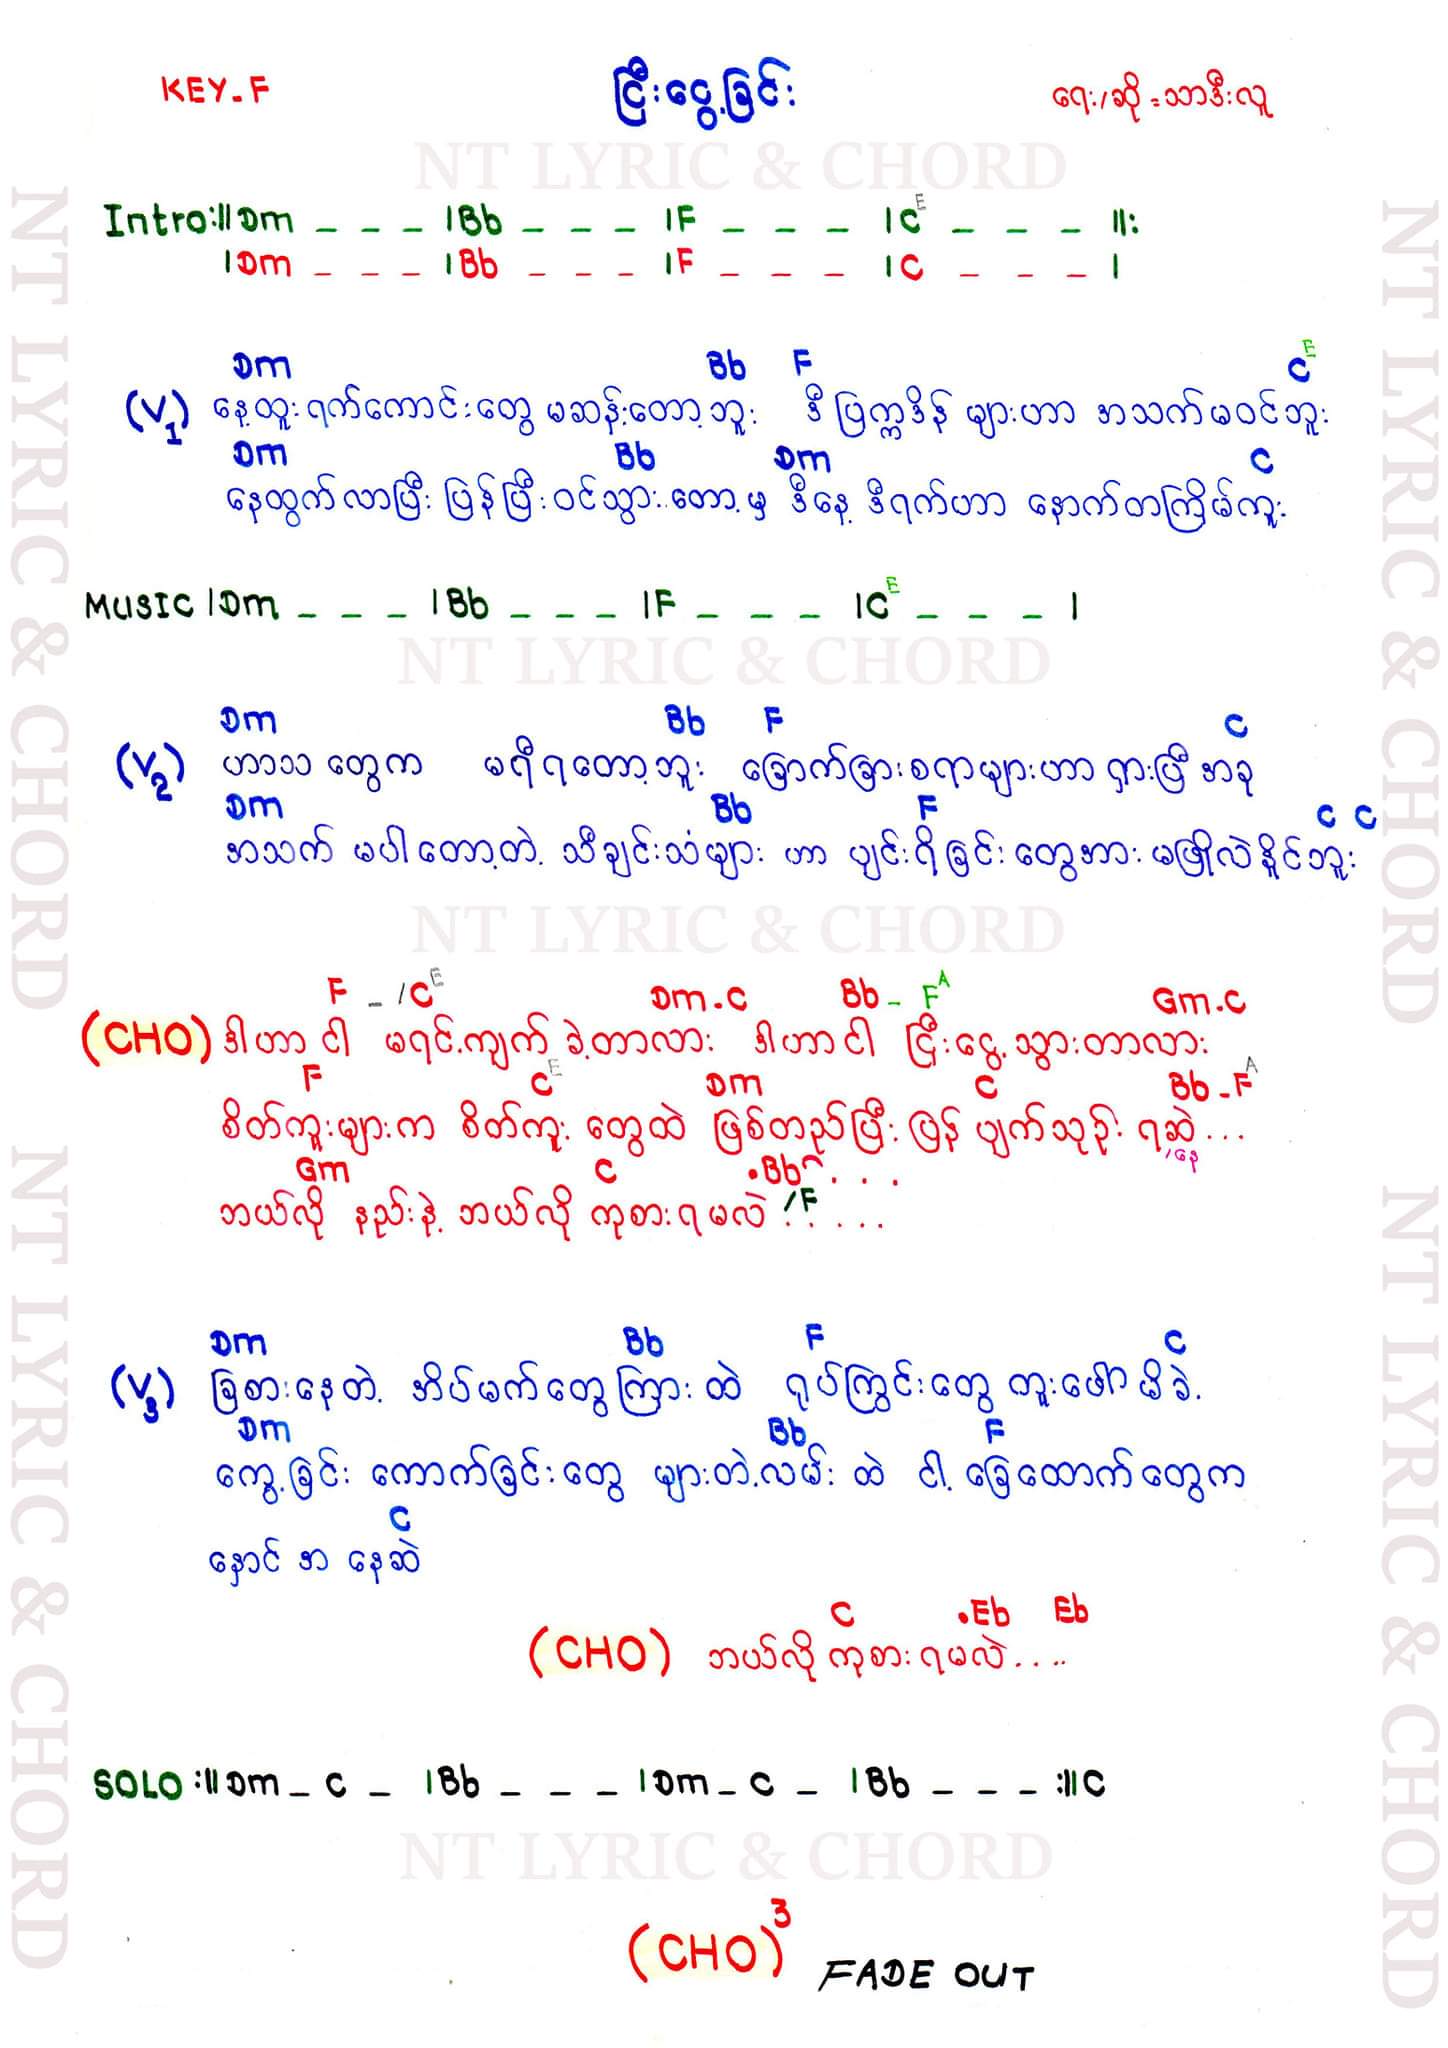 KEY-F ငြီးငွေ့ခြင်း ရေး/ဆို = သာဒီးလူ
NT LYRIC & CHORD
Intro :|| Dm _ _ _ | Bb _ _ _ | F _ _ _ | C E _ _ _ ||:
| Dm _ _ _ | Bb _ _ _ | F _ _ _ | C _ _ _ |
Dm Bb F C E
(V1) နေ့ထူးရက်ကောင်းတွေ မဆန်းတော့ဘူး ဒီ ပြက္ခဒိန် များဟာ အသက်မဝင်ဘူး
Dm Bb Dm C
နေထွက်လာပြီး ပြန်ပြီးဝင်သွားတော့မှ ဒီနေ့ ဒီရက်ဟာ နောက်တကြိမ်ကူး
MUSIC | Dm _ _ _ | Bb _ _ _ | F _ _ _ | C E _ _ _ |
NT LYRIC & CHORD
Dm Bb F C
(V2) ဟာသ တွေက မရီရတော့ဘူး ခြောက်ခြားစရာများဟာ ရှားပြီ အခု
Dm Bb F C C
အသက် မပါတော့တဲ့ သီချင်းသံများ ဟာ ပျင်းရိခြင်းတွေအား မဖြိုလဲနိုင်ဘူး
NT LYRIC & CHORD
F _ / C E Dm - C Bb - F A Gm - C
(CHO) ဒါဟာ ငါ မရင့်ကျက်ခဲ့တာလား ဒါဟာငါ ငြီးငွေ့သွားတာလား
F C E Dm C Bb - F A
စိတ်ကူးများက စိတ်ကူးတွေထဲ ဖြစ်တည်ပြီး ပြန်ပျက်သုဉ်းရဆဲ...
/နေ
Gm C .Bb ^ . . .
ဘယ်လို နည်းနဲ့ ဘယ်လို ကုစားရမလဲ /F . . . . .
Dm Bb F C
(V3) ခြစားနေတဲ့ အိပ်မက်တွေကြားထဲ ရုပ်ကြွင်းတွေ တူးဖေါ်မိခဲ့
Dm Bb F
ကွေ့ခြင်း ကောက်ခြင်းတွေ များတဲ့လမ်း ထဲ ငါ့ ခြေထောက်တွေက
C
နှောင် အ နေဆဲ
C .Eb Eb
(CHO) ဘယ်လို ကုစားရမလဲ....
SOLO :|| Dm _ C _ | Bb _ _ _ | Dm _ C _ | Bb _ _ _ :|| C
NT LYRIC & CHORD
(CHO)3 FADE OUT
NT LYRIC & CHORD
NT LYRIC & CHORD
NT LYRIC & CHORD
NT LYRIC & CHORD